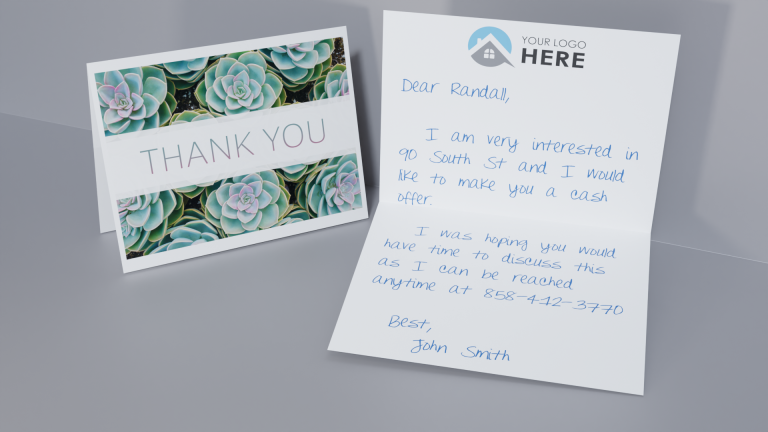 THANK YOU
YOUR LOGO
HERE
Dear Randall,
I am very interested in
90 South St and I would
like to make you a cash
offer.
I was hoping you would
have time to discuss this
as I can be reached
anytime at 858-412-3770
Best,
John Smith